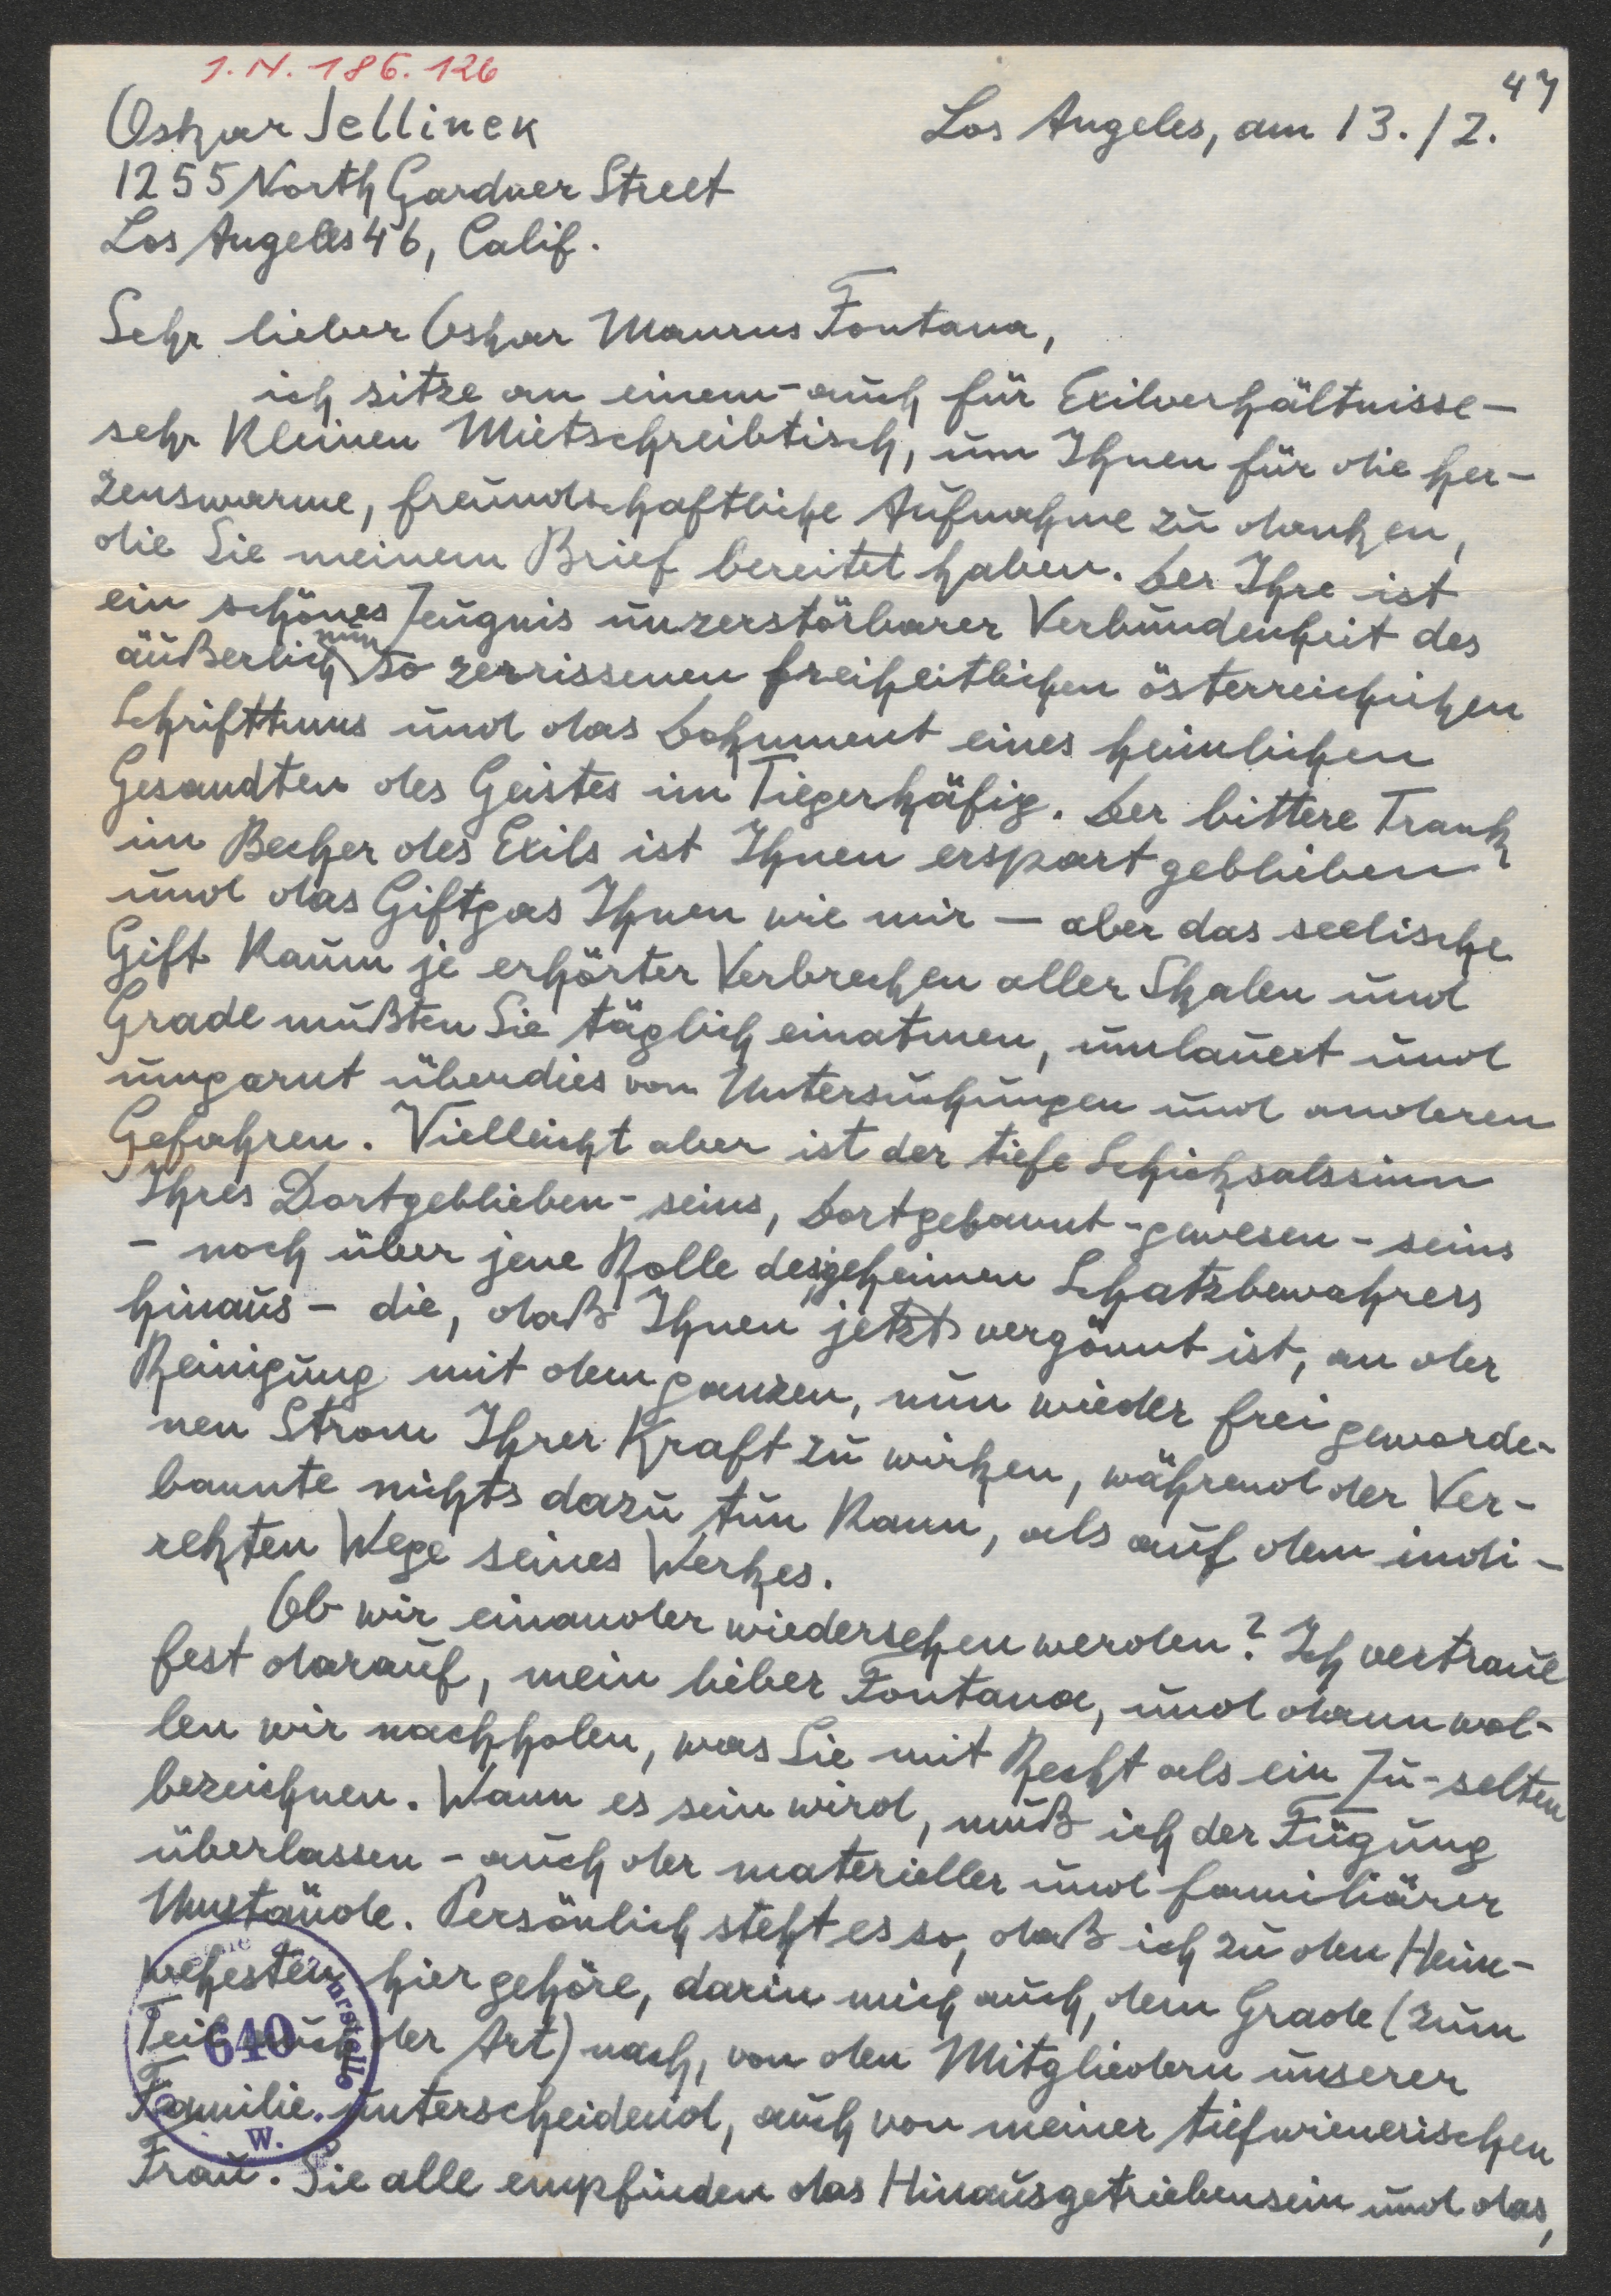 I.N. 186.126
Oskar Jellinek
Los Angeles, am 13./2. 47
1255 North Gardner Street
Los Angeles 46, Calif.
Sehr lieber Oskar Maurus Fontana,
ich sitze an einem - auch für Exilverhältnisse -
sehr kleinen Mietschreibtisch, um Ihnen für die her-
zenswarme, freundschaftliche Aufnahme zu danken,
die Sie meinem Brief bereitet haben. Der Ihre ist
ein schönes Zeugnis unzerstörbarer Verbundenheit des
äußerlich nun so zerrissenen freiheitlichen österreichischen
Schrifttums und das Dokument eines heimlichen
Gesandten des Geistes im Tigerkäfig. Der bittere Trank
im Becher des Exils ist Ihnen erspart geblieben
und das Giftgas Ihnen wie mir — aber das seelische
Gift kaum je erhörter Verbrechen aller Skalen und
Grade mußten Sie täglich einatmen, umlauert und
umgarnt überdies von Untersuchungen und anderen
Gefahren. Vielleicht aber ist der tiefe Schicksalssinn
Ihres Dortgeblieben-seins, Dortgebannt-gewesen-seins
- noch über jene Rolle des geheimen Schatzbewahrers
hinaus - die, daß Ihnen jetzt vergönnt ist, an der
Reinigung mit dem ganzen, nun wieder frei geworde-
nen Strom Ihrer Kraft zu wirken, während der Ver-
bannte nichts dazu tun kann, als auf dem indi-
rekten Wege seines Werkes.
Ob wir einander wiedersehen werden? Ich vertraue
fest darauf, mein lieber Fontana, und dann wol-
len wir nachholen, was Sie mit Recht als ein Zu-selten
bezeichnen. Wann es sein wird, muß ich der Fügung
überlassen - auch der materieller und familiärer
Umstände. Persönlich steht es so, daß ich zu den Heim-
wehesten hier gehöre, darin mich auch, dem Grade (zum
Teil auch der Art) nach, von den Mitgliedern unserer
Familie unterscheidend, auch von meiner tiefwienerischen
Frau. Sie alle empfinden das Hinausgetriebensein und das,
640
W.